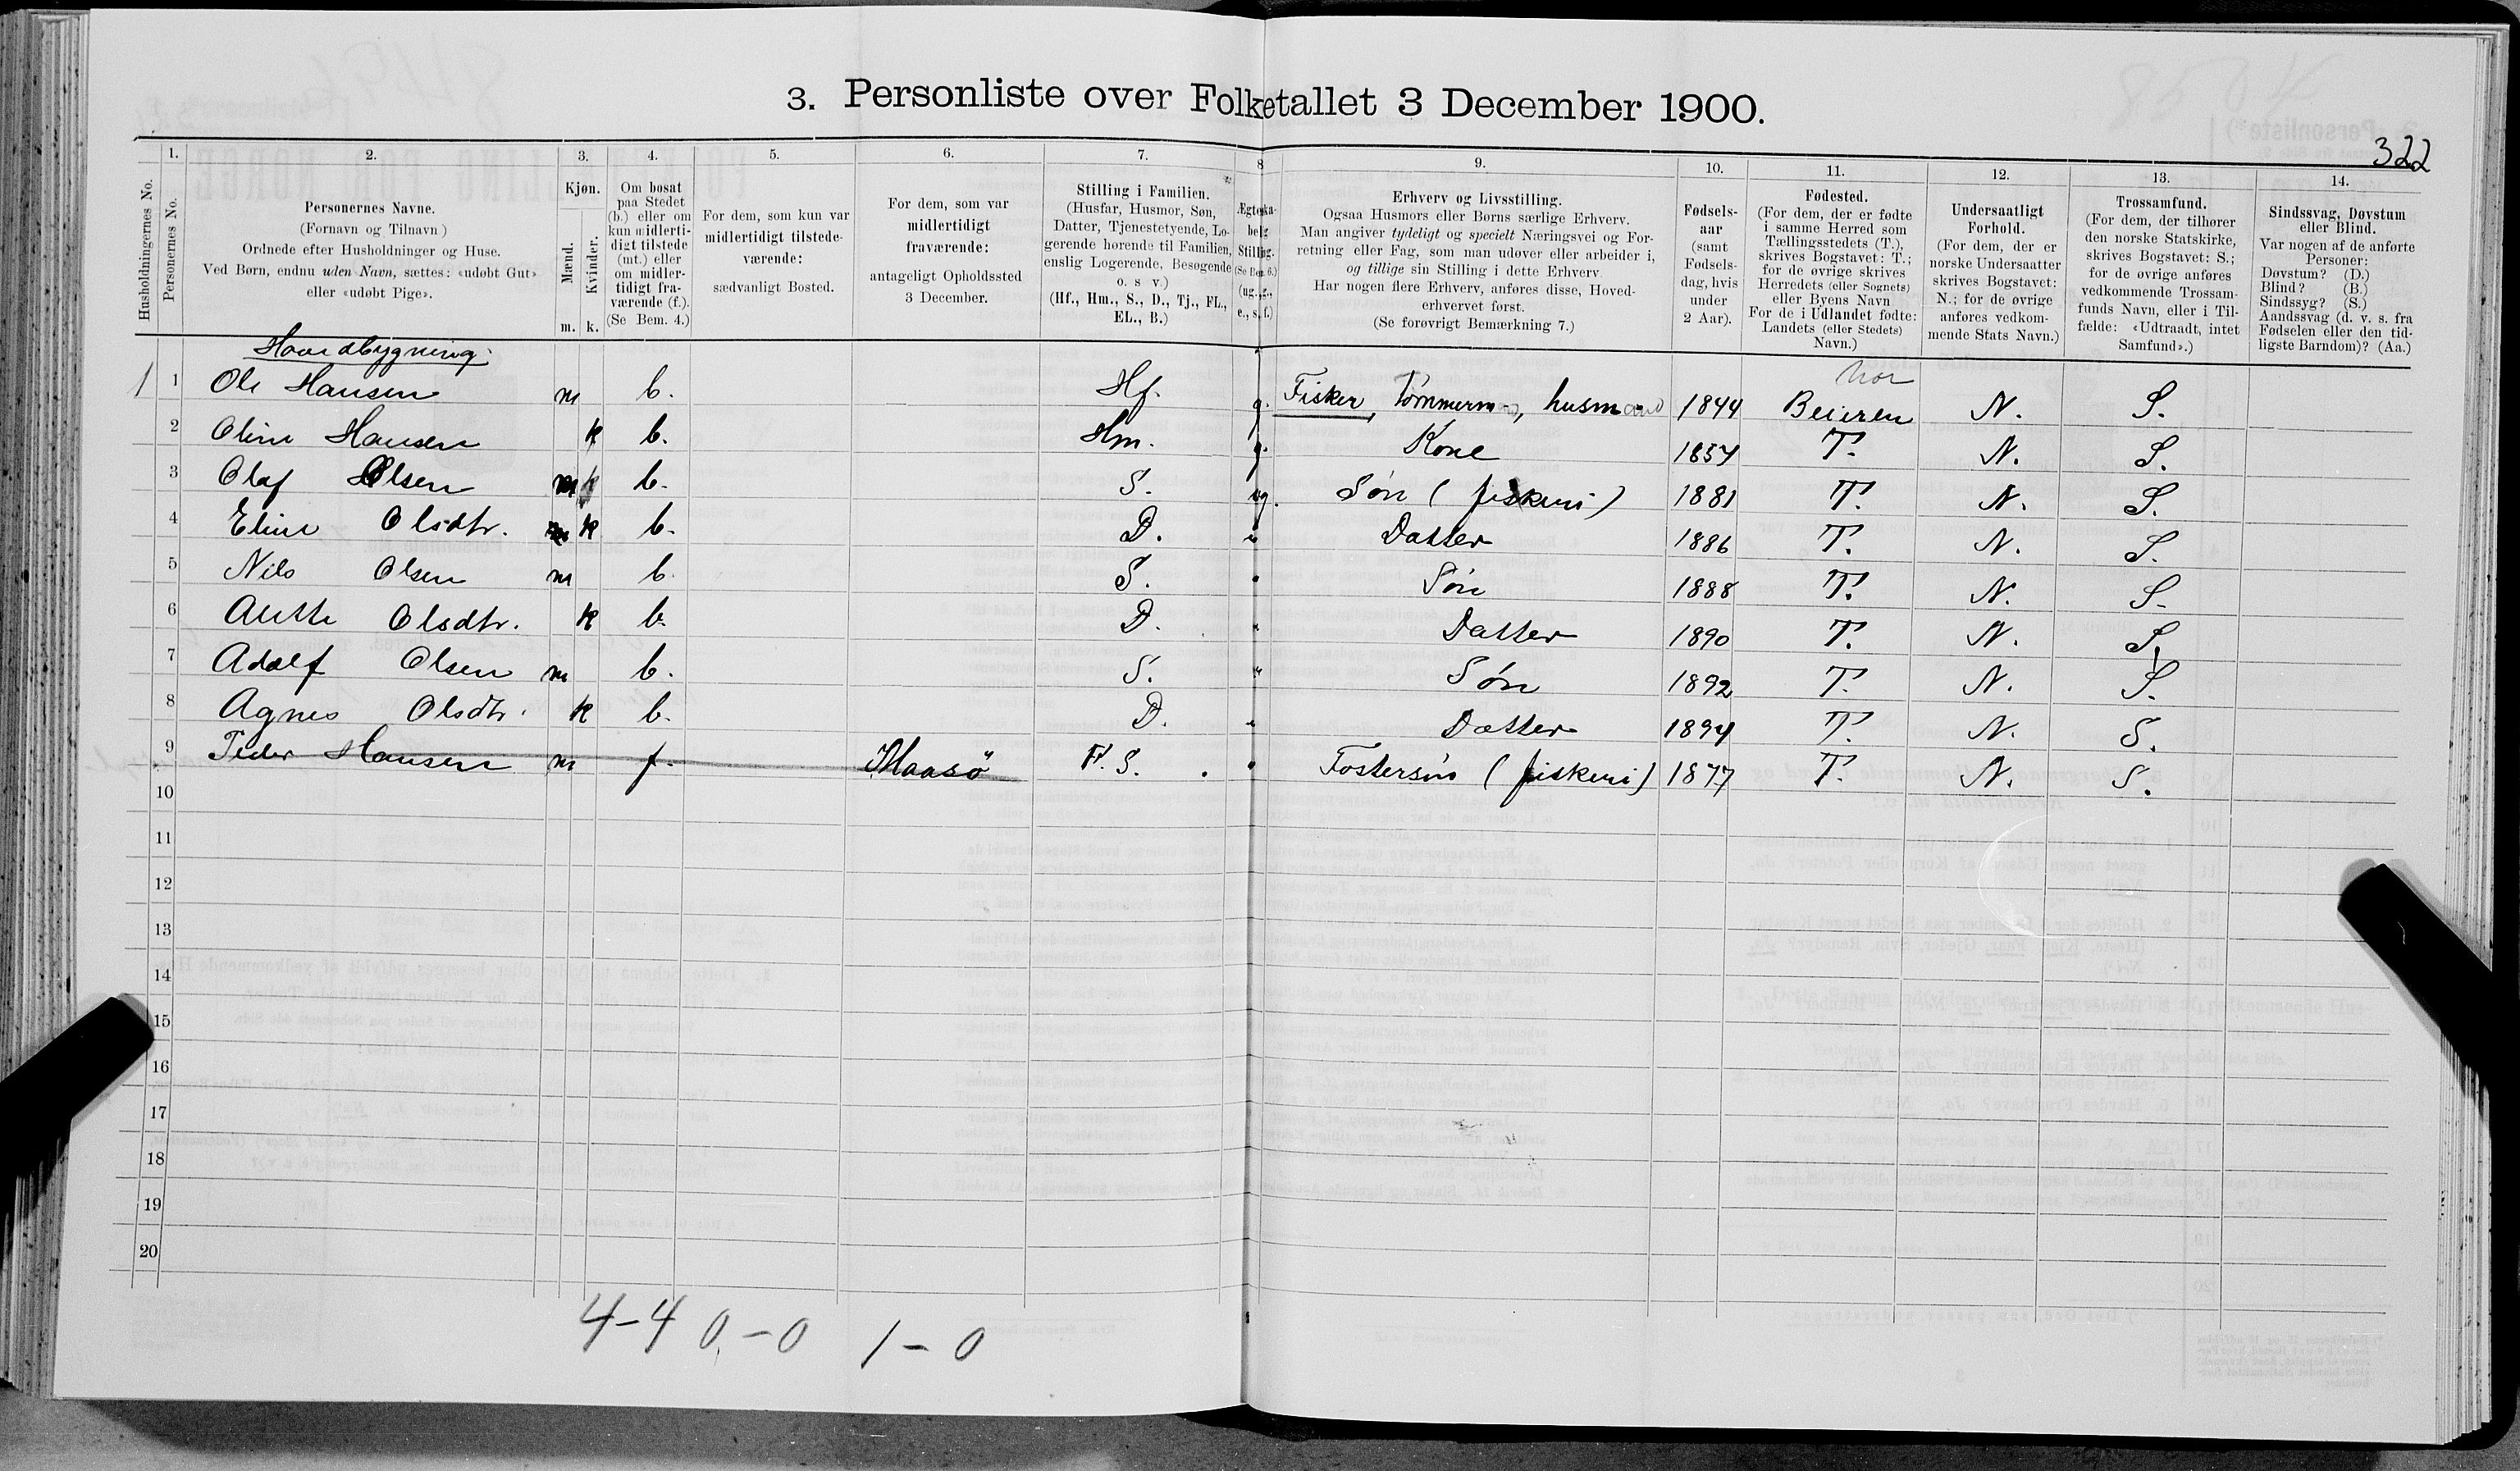 3. Personliste over Folketallet 3 December 1900.
322
1. 2. 3. 4. 5. 6. 7. 8 9. 10. 11. 12. 13. 14.
Husholdningernes No.
Personernes No.
Personernes Navne.
(Fornavn og Tilnavn)
Ordnede efter Husholdninger og Huse.
Ved Børn, endnu uden Navn, sættes: «udøbt Gut»
eller «udøbt Pige».
Kjøn.
Mænd.
Kvinder.
m. k.
Om bosat
paa Stedet
(b.) eller om
kun midlerti-
digt tilstede
(mt.) eller
om midler-
tidigt fra-
værende (f.).
(Se Bem. 4.)
For dem, som kun var
midlertidigt tilstede-
værende:
sædvanligt Bosted.
For dem, som var
midlertidigt
fraværende:
antageligt Opholdssted
3 December.
Stilling i Familien.
(Husfar, Husmor, Søn,
Datter, Tjenestetyende, Lo-
gerende hørende til Familien,
enslig Logerende, Besøgende
o. s. v.)
(Hf., Hm., S., D., Tj., FL.,
EL., B.)
Ægteska-
belig
Stilling.
(Se Bem. 6.)
(ug., g.,
e., s., f.)
Erhverv og Livsstilling.
Ogsaa Husmors eller Børns særlige Erhverv.
Man angiver tydeligt og specielt Næringsvei og For-
retning eller Fag, som man udøver eller arbeider i,
og tillige sin Stilling i dette Erhverv.
Har nogen flere Erhverv, anføres disse, Hoved-
erhvervet først.
(Se forøvrigt Bemærkning 7.)
Fødsels-
aar
(samt
Fødsels-
dag, hvis
under
2 Aar).
Fødested.
(For dem, der er fødte
i samme Herred som
Tællingsstedets (T.),
skrives Bogstavet: T.;
for de øvrige skrives
Herredets (eller Sognets)
eller Byens Navn
For de i Udlandet fødte:
Landets (eller Stedets)
Navn.)
Undersaatligt
Forhold.
(For dem, der er
norske Undersaatter
skrives Bogstavet:
N.; for de øvrige
anføres vedkom-
mende Stats Navn.)
Trossamfund.
(For dem, der tilhører
den norske Statskirke,
skrives Bogstavet: S.;
for de øvrige anføres
vedkommende Trossam-
funds Navn, eller i Til-
fælde: «Udtraadt, intet
Samfund».)
Sindssvag, Døvstum
eller Blind.
Var nogen af de anførte
Personer:
Døvstum? (D.)
Blind? (B.)
Sindssyg? (S.)
Aandssvag (d. v. s. fra
Fødselen eller den tid-
ligste Barndom)? (Aa.)
Hovedbygning
1 1 Ole Hansen m b. Hf. g. Fisker, Tømmerm., husmand 1844 Beieren N. S.
2 Oline Hansen k b. Hm. g. Kone 1857 T. N. S.
3 Olaf Olsen m b. S. ug. Søn (fiskeri) 1881 T. N. S.
4 Eline Olsdtr. k b. D. " Datter 1886 T. N. S.
5 Nils Olsen m b. S. " Søn 1888 T. N. S.
6 Olsdtr. k b. D. " Datter 1890 T. N. S.
7 Adolf Olsen m b. S. " Søn 1892 T. N. S.
8 Agnes Olsdtr. k b. D. " Datter 1894 T. N. S.
9 Peder Hansen m f. Maasö F. S. " Fostersøn (fiskeri) 1877 T. N. S.
10
11
12
13
14
15
16
17
18
19
20
4-4 0-0 1-0